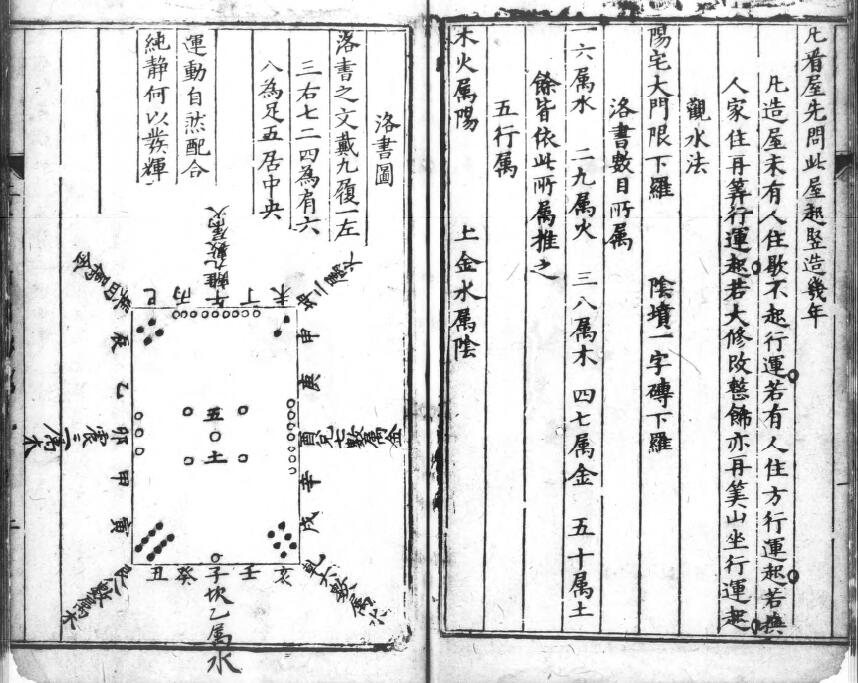 凡看屋先問此屋起竪造幾年
凡造屋未有人住歇不起行運若有人住方行運起若換
人家住再筭行運起若大修改整飾亦再筭山坐行運起
觀水法
陽宅大門限下羅 陰墳一字磚下羅
洛書數目所属
一六属水 二九属火 三八属木 四七属金 五十属土
餘皆依此所属推之
五行属
木火属陽 土金水属陰
洛書圖
洛書之文戴九履一左
三右七二四為肩六
八為足五居中央
運動自然配合
純静何以發輝
午離九數属火
巳 丙 丁 未
辰 乙 卯 甲 寅
震三属木
五
土
申 庚 酉 辛 戌
兌七數属金
丑 癸 子 壬 亥
坎乙属水
乾六數属水